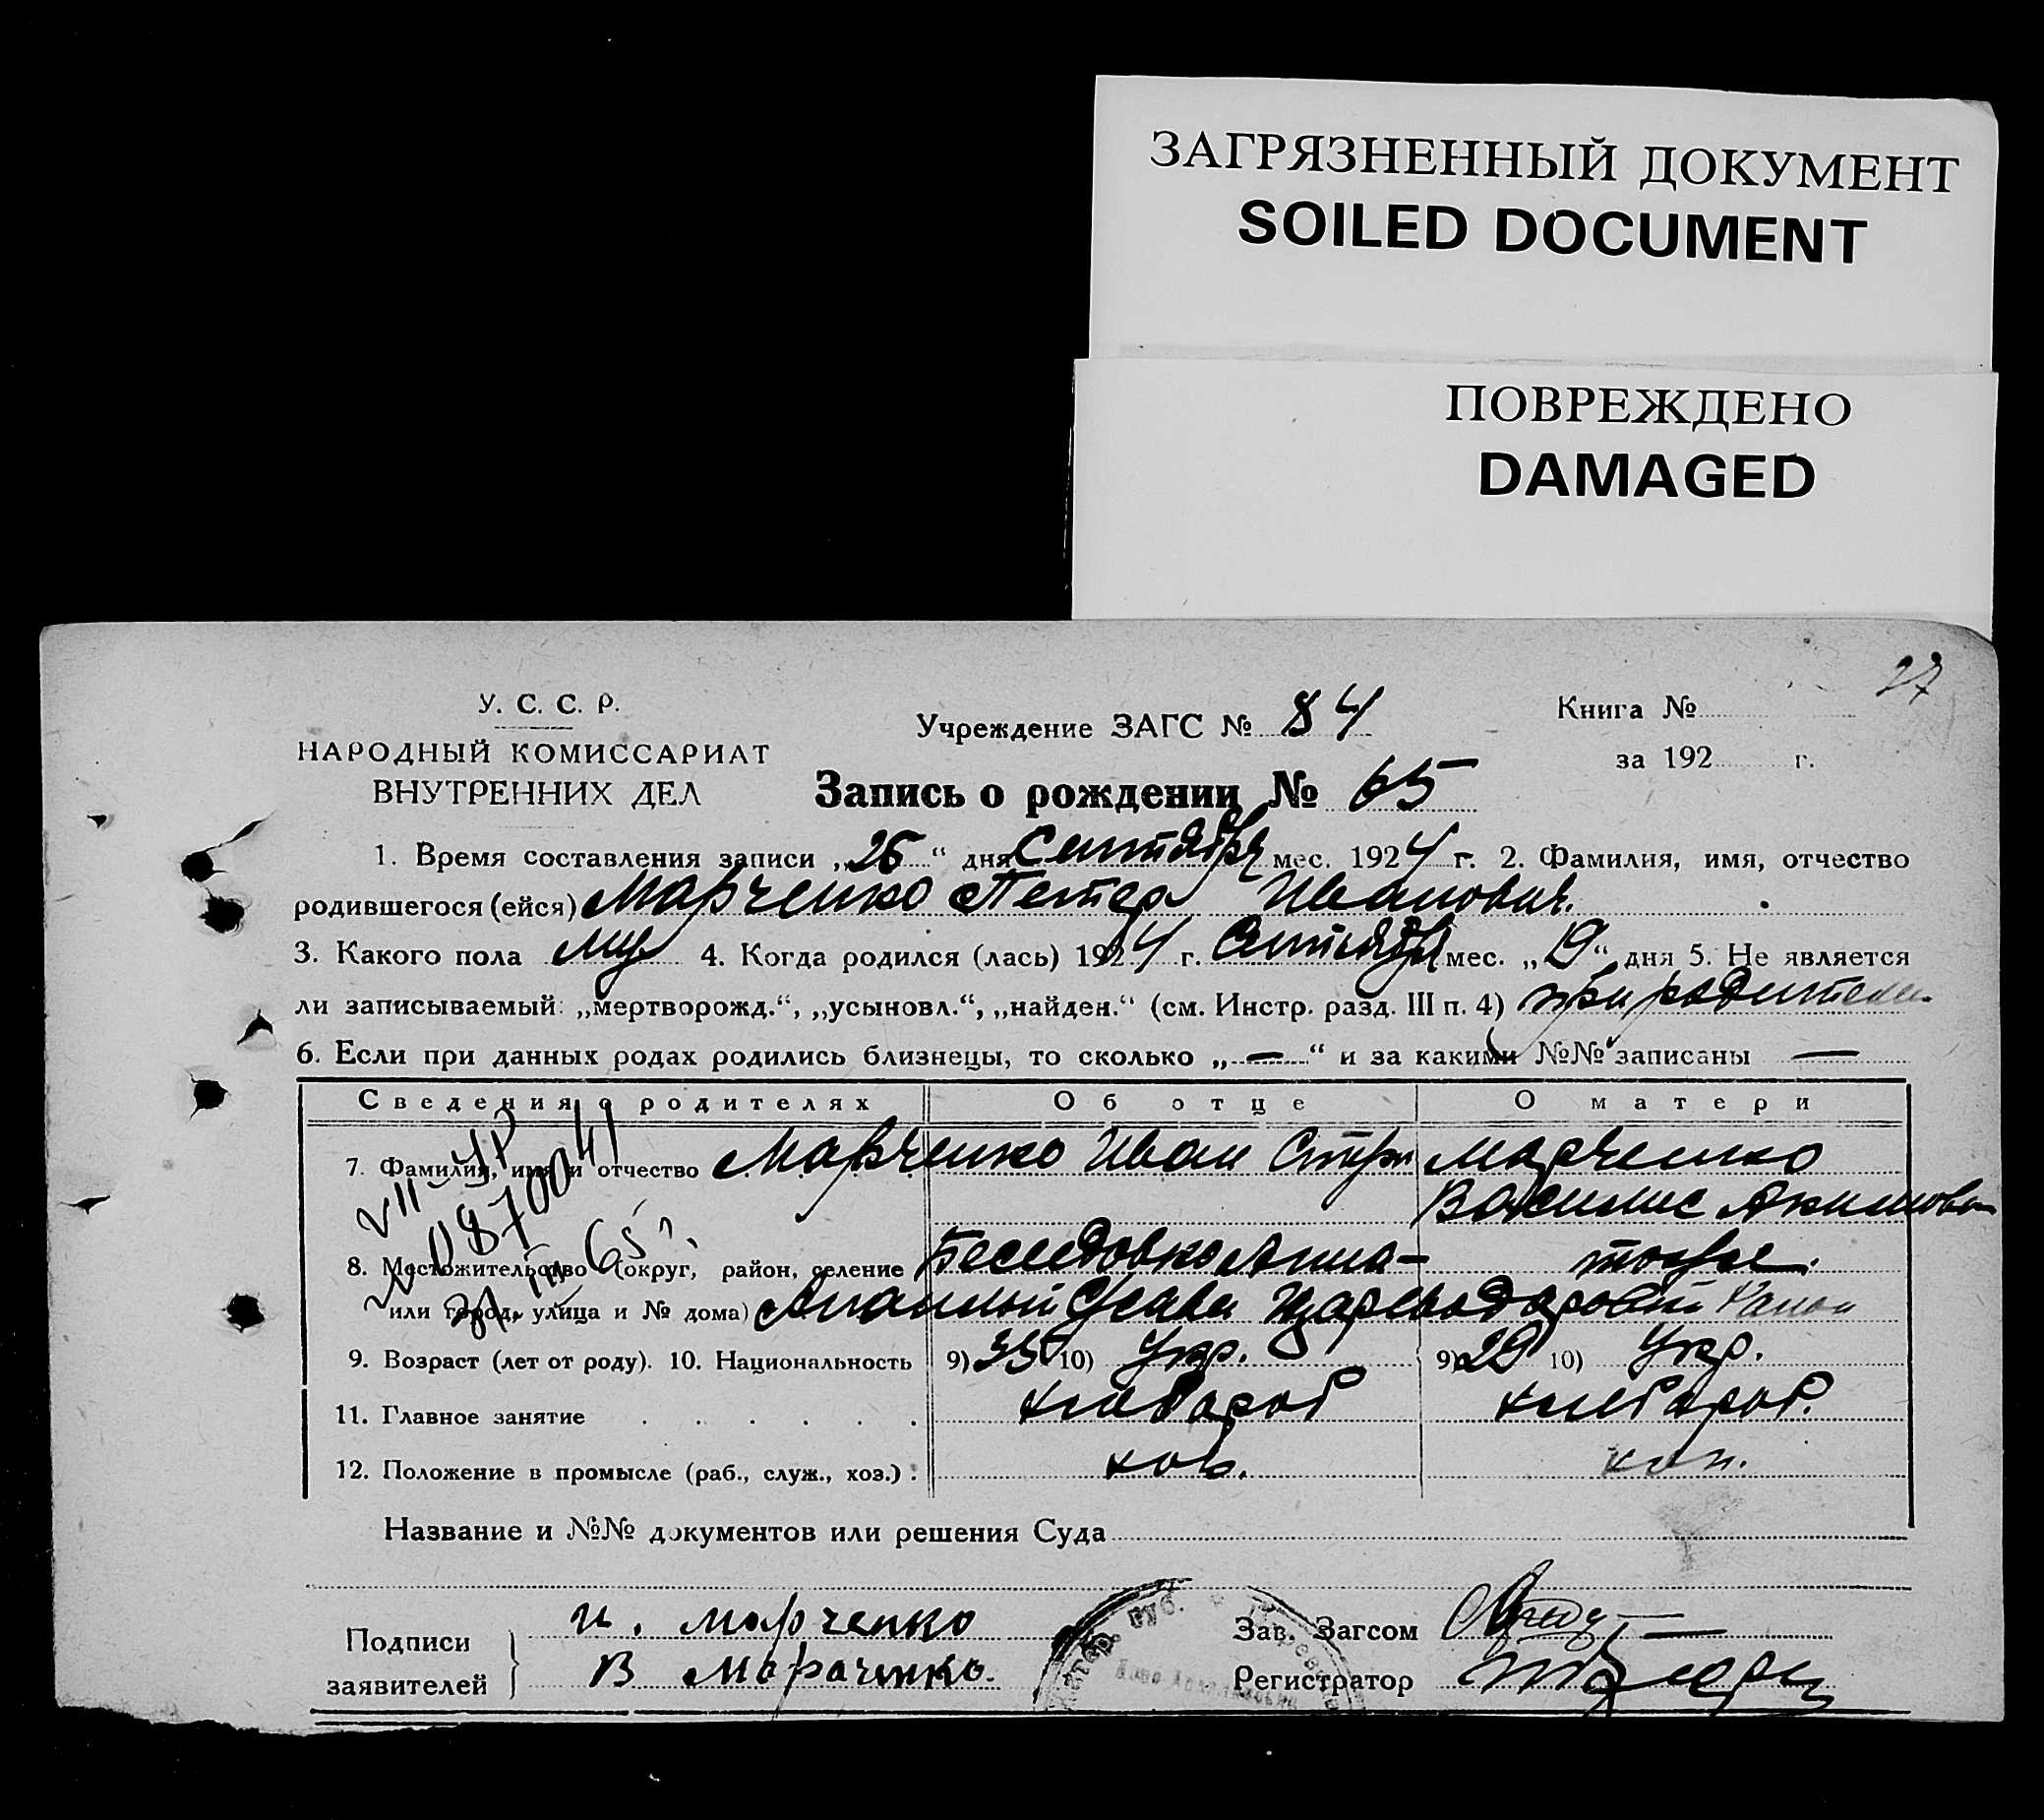 ЗАГРЯЗНЕННЫЙ ДОКУМЕНТ
SOILED DOCUMENT
ПОВРЕЖДЕНО
DAMAGED
27
У. С. С. Р.
НАРОДНЫЙ КОМИССАРИАТ
ВНУТРЕННИХ ДЕЛ
Учреждение ЗАГС № 84
Книга №
за 192 г.
Запись о рождении № 65
1. Время составления записи „26“ дня Сентября мес. 1924 г. 2. Фамилия, имя, отчество
родившегося (ейся) Марченко Петер Иванович.
3. Какого пола муж 4. Когда родился (лась) 1924 г. Сентября мес. „19“ дня 5. Не является
ли записываемый: „мертворожд.“, „усыновл.“, „найден.“ (см. Инстр. разд. III п. 4) при родителях
6. Если при данных родах родились близнецы, то сколько „—“ и за какими №№ записаны —
Сведения о родителях Об отце О матери
7. Фамилия, имя и отчество Марченко Иван Марченко
8. Местожительство (округ, район, селение
или город, улица и № дома) Район
9. Возраст (лет от роду). 10. Национальность 9) 35 10) Укр. 9) 29 10) Укр.
11. Главное занятие хлебороб хлебороб.
12. Положение в промысле (раб., служ., хоз.) :
Название и №№ документов или решения Суда
Подписи
заявителей
и. марченко
В Марченко.
Зав. Загсом
Регистратор